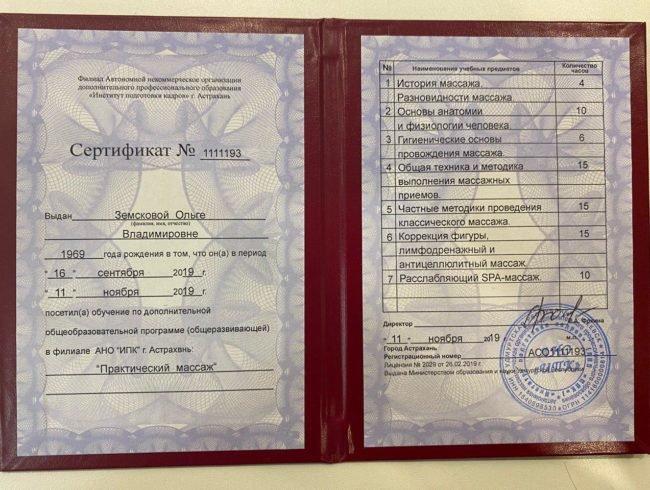 Филиал Автономной некоммерческое организации
дополнительного профессионального образования
«Институт подготовки кадров» г. Астрахань
Сертификат № 1111193
Выдан Земсковой Ольге
(фамилия, имя, отчество)
Владимировне
1969 года рождения в том, что он(а) в период
"16" сентября 2019 г.
"11" ноября 2019 г.
посетил(а) обучение по дополнительной
общеобразовательной программе (общеразвивающей)
в филиале АНО "ИПК" г. Астрахвнь:
"Практический массаж"
№ Наименования учебных предметов Количество
часов
1 История массажа. 4
Разновидности массажа.
2 Основы анатомии 10
и физиологии человека.
3 Гигиенические основы 6
провождения массажа.
4 Общая техника и методика 15
выполнения массажных
приемов.
5 Частные методики проведения 15
классического массажа.
6 Коррекция фигуры, 15
лимфодренажный и
антицеллюлитный массаж.
7 Расслабляющий SPA-массаж. 10
Директор
"11" ноября 2019 м.п.
Город Астрахань
Регистрационный номер
Лицензия № 2029 от 26.02.2019 г.
Выдана Министерством образования и науки
"ИПК"